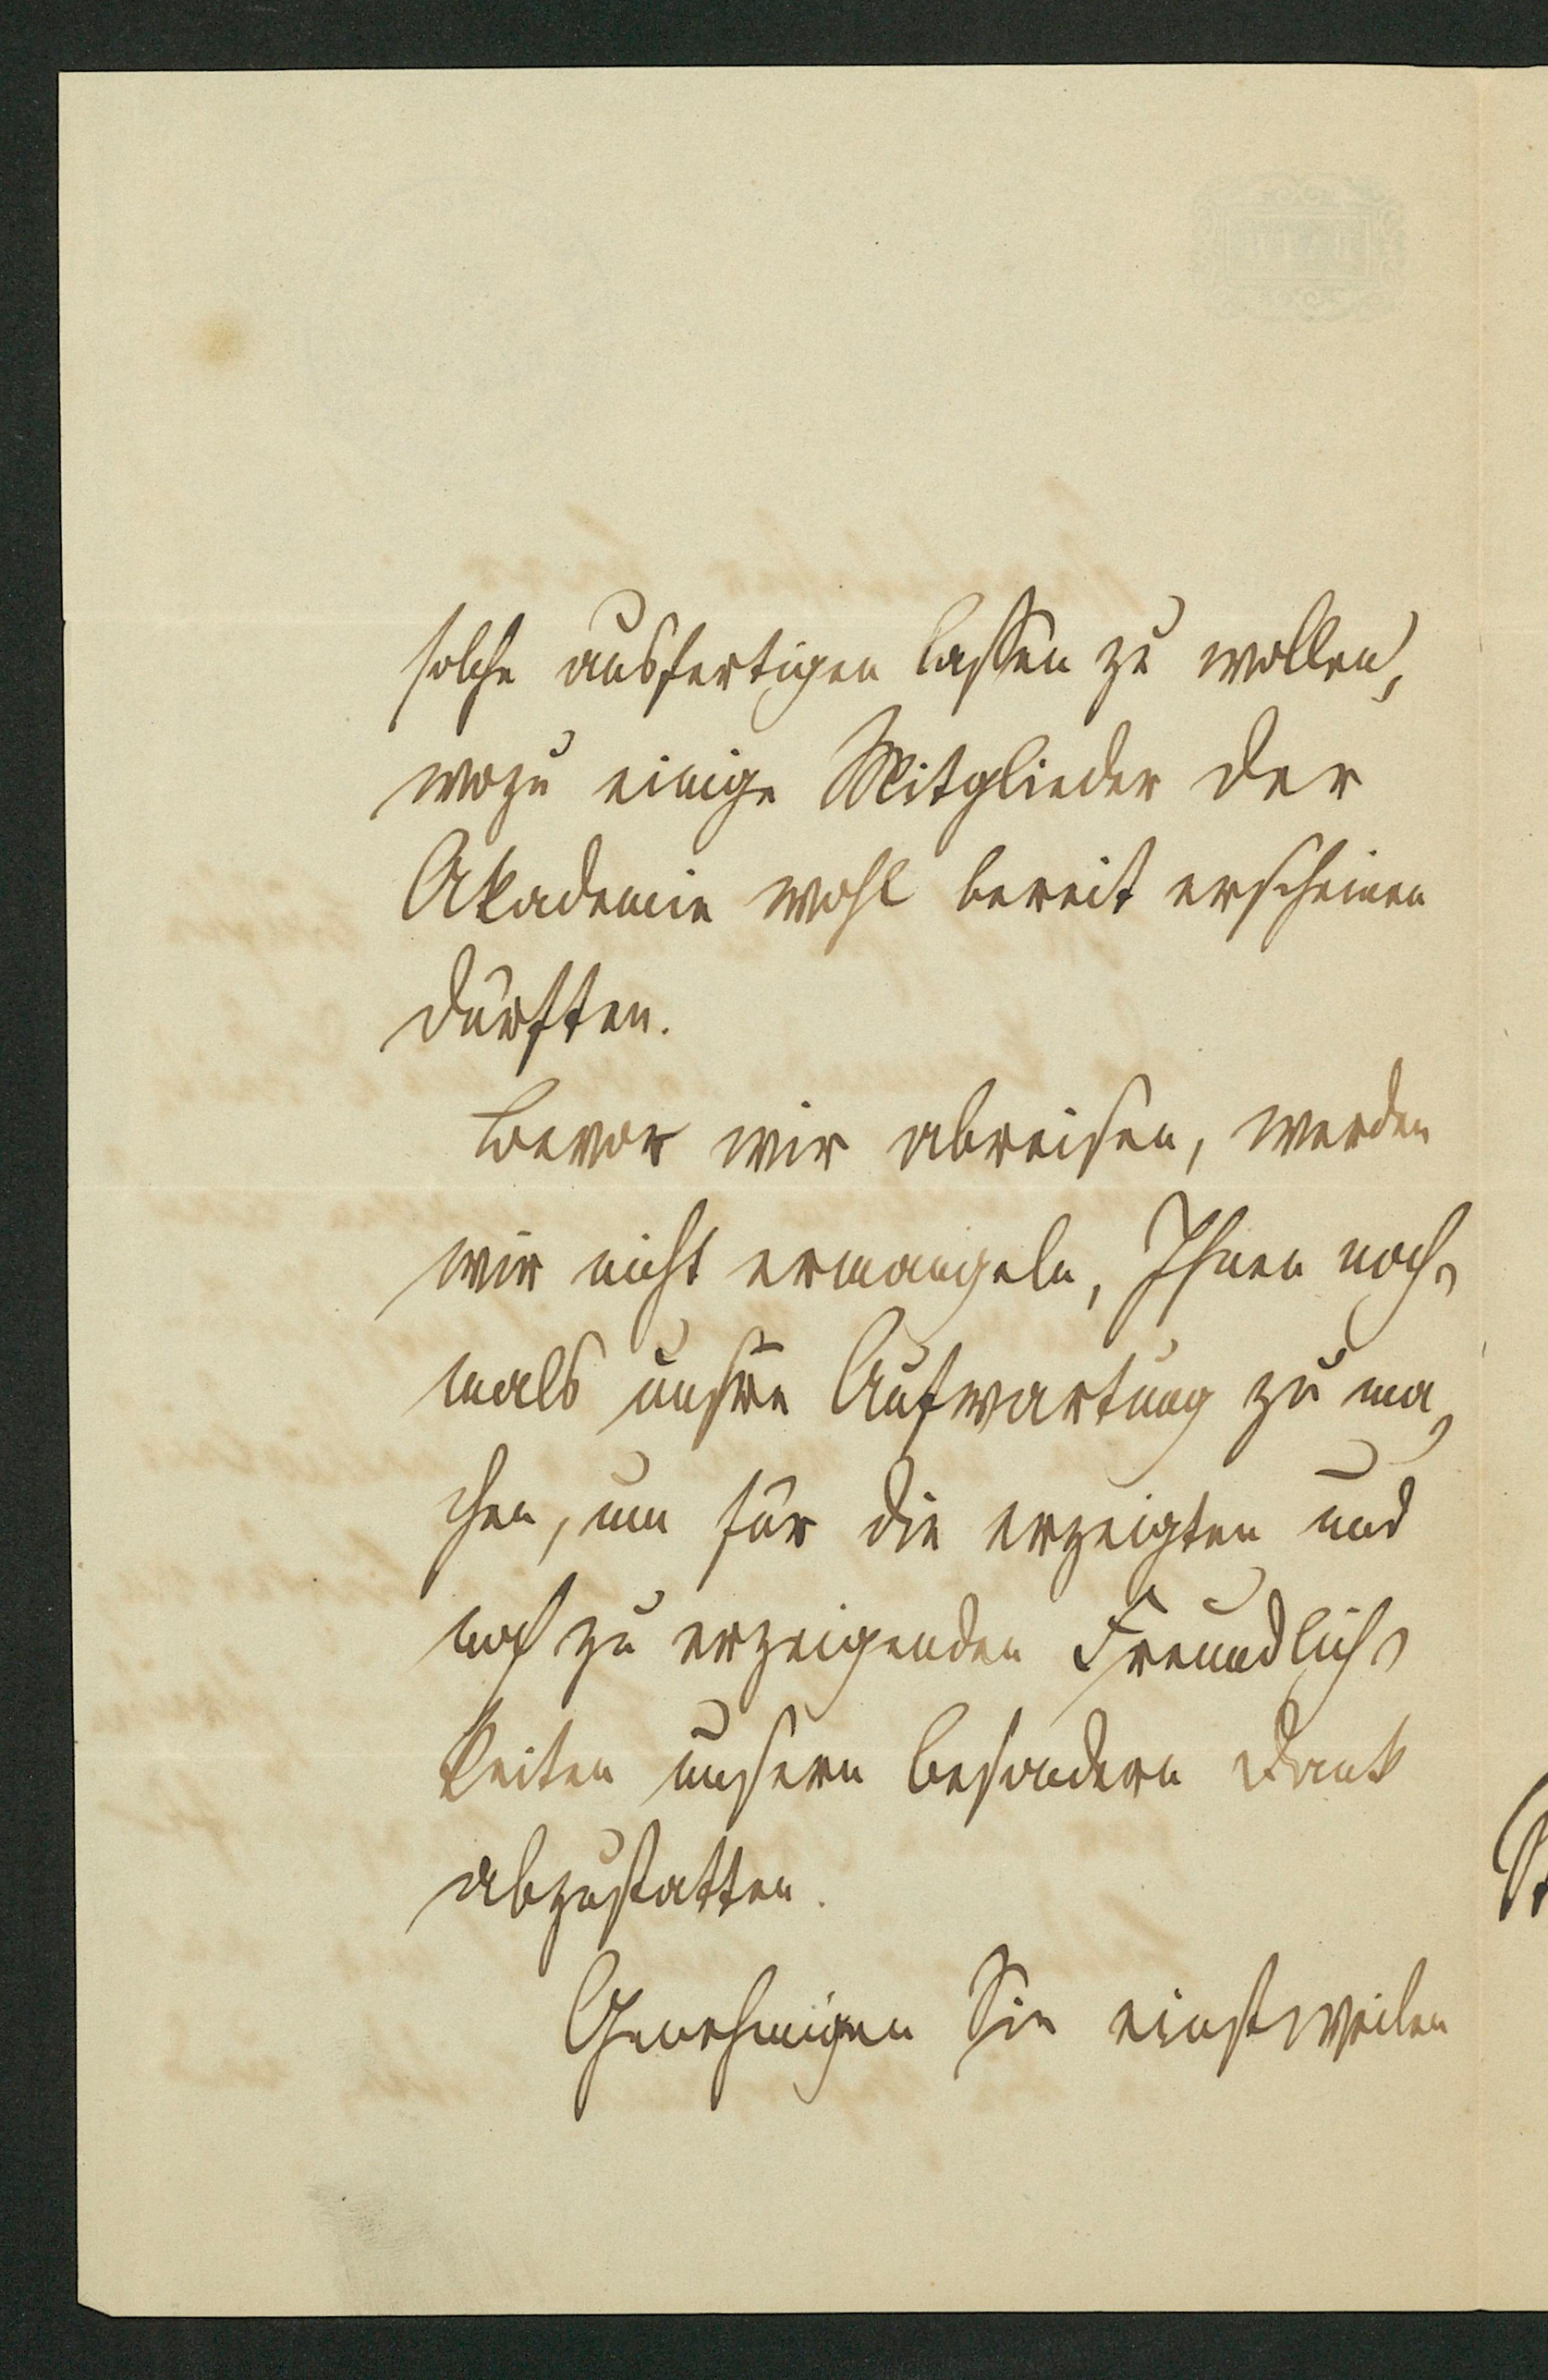 solche ausfertigen lassen zu wollen,
wozu einige Mitglieder der
Akademie wohl bereit erscheinen
dürften.
Bevor wir abreisen, werden
wir nicht ermangeln, Ihnen noch-
mals unsere Aufwartung zu ma-
chen, um für die erzeigten und
noch zu erzeigenden Freundlich-
keiten unsern besondern Dank
abzustatten.
Genehmigen Sie einstweilen